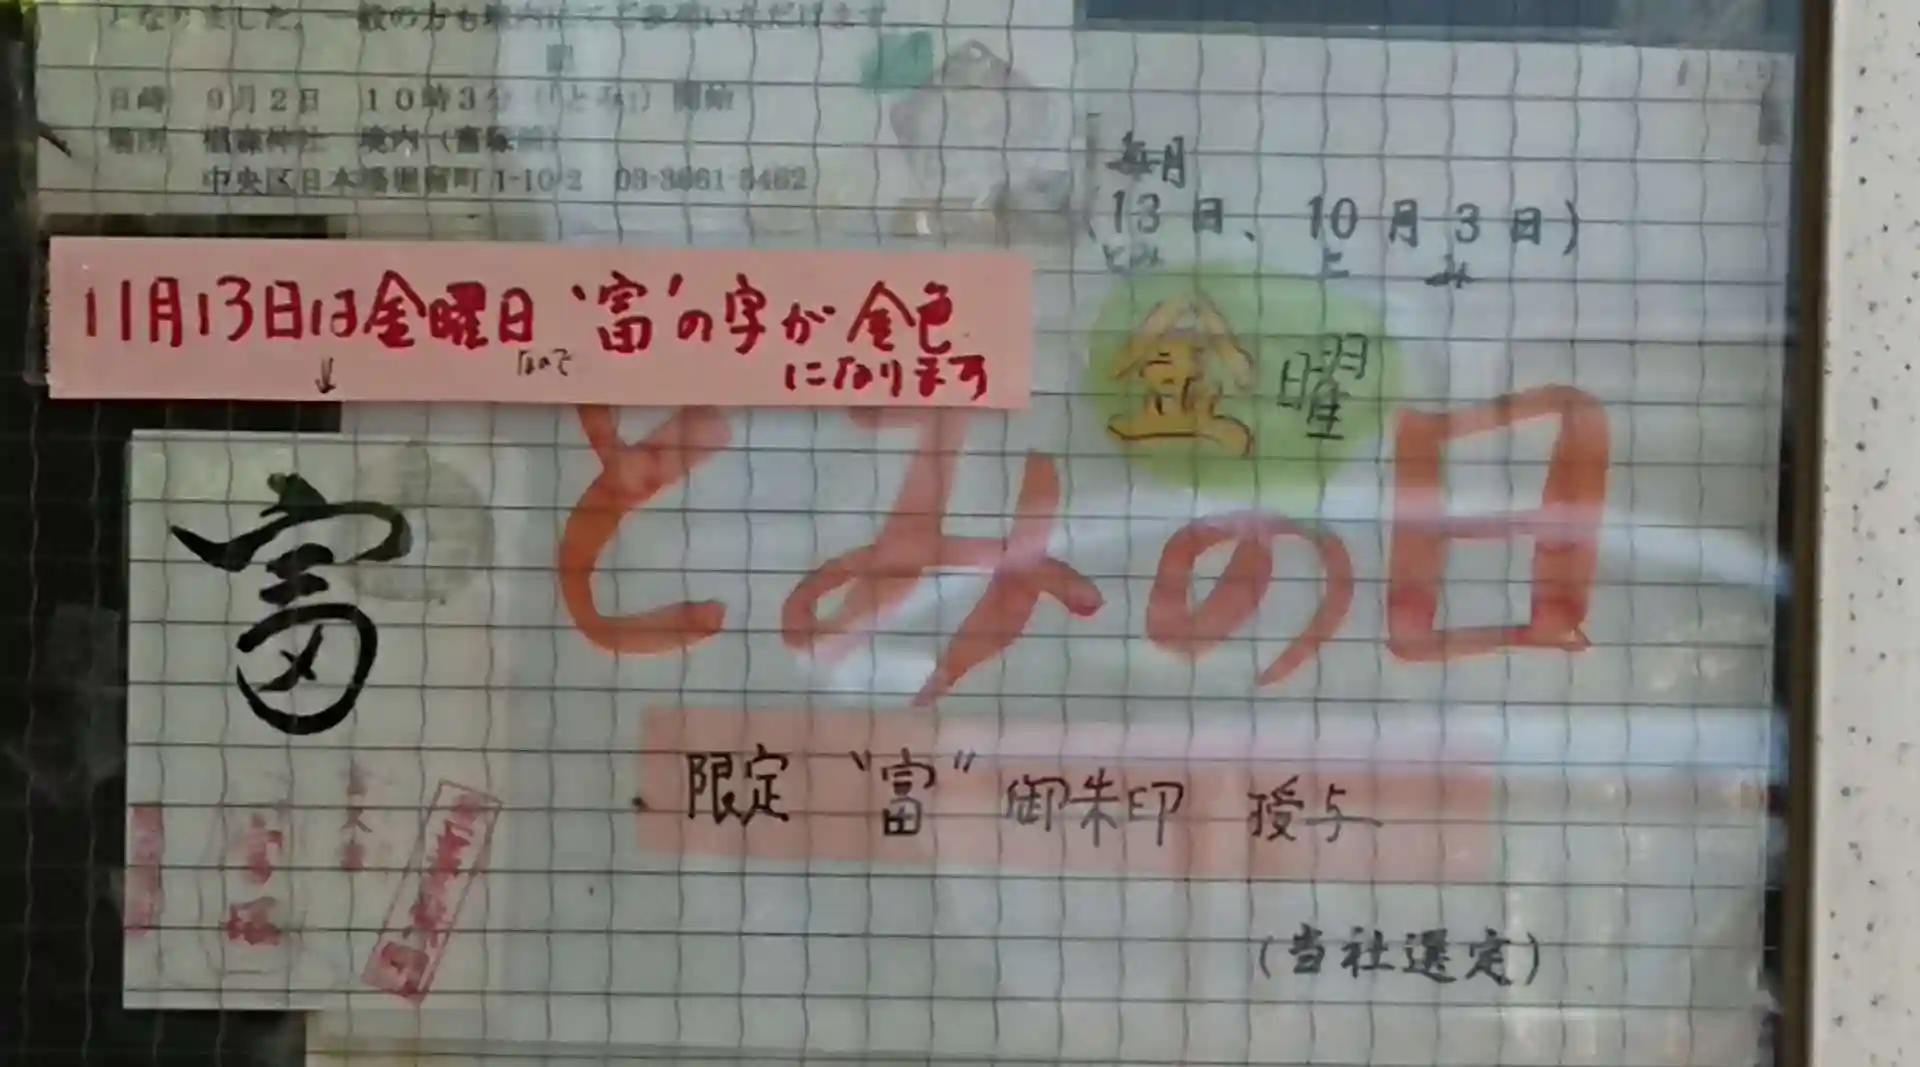 となりました。一般の方も境内にてご参観いただけます。
日時 9月2日 10時3分(とみ) 開始
場所 椙森神社 境内(富塚前)
中央区日本橋堀留町1-10-2 03-3661-5462
毎月
(13日、10月3日)
とみ と み
11月13日は金曜日なので“富”の字が金色
になります
↓
金曜
とみの日
富
限定 “富” 御朱印 授与
富塚
(当社選定)